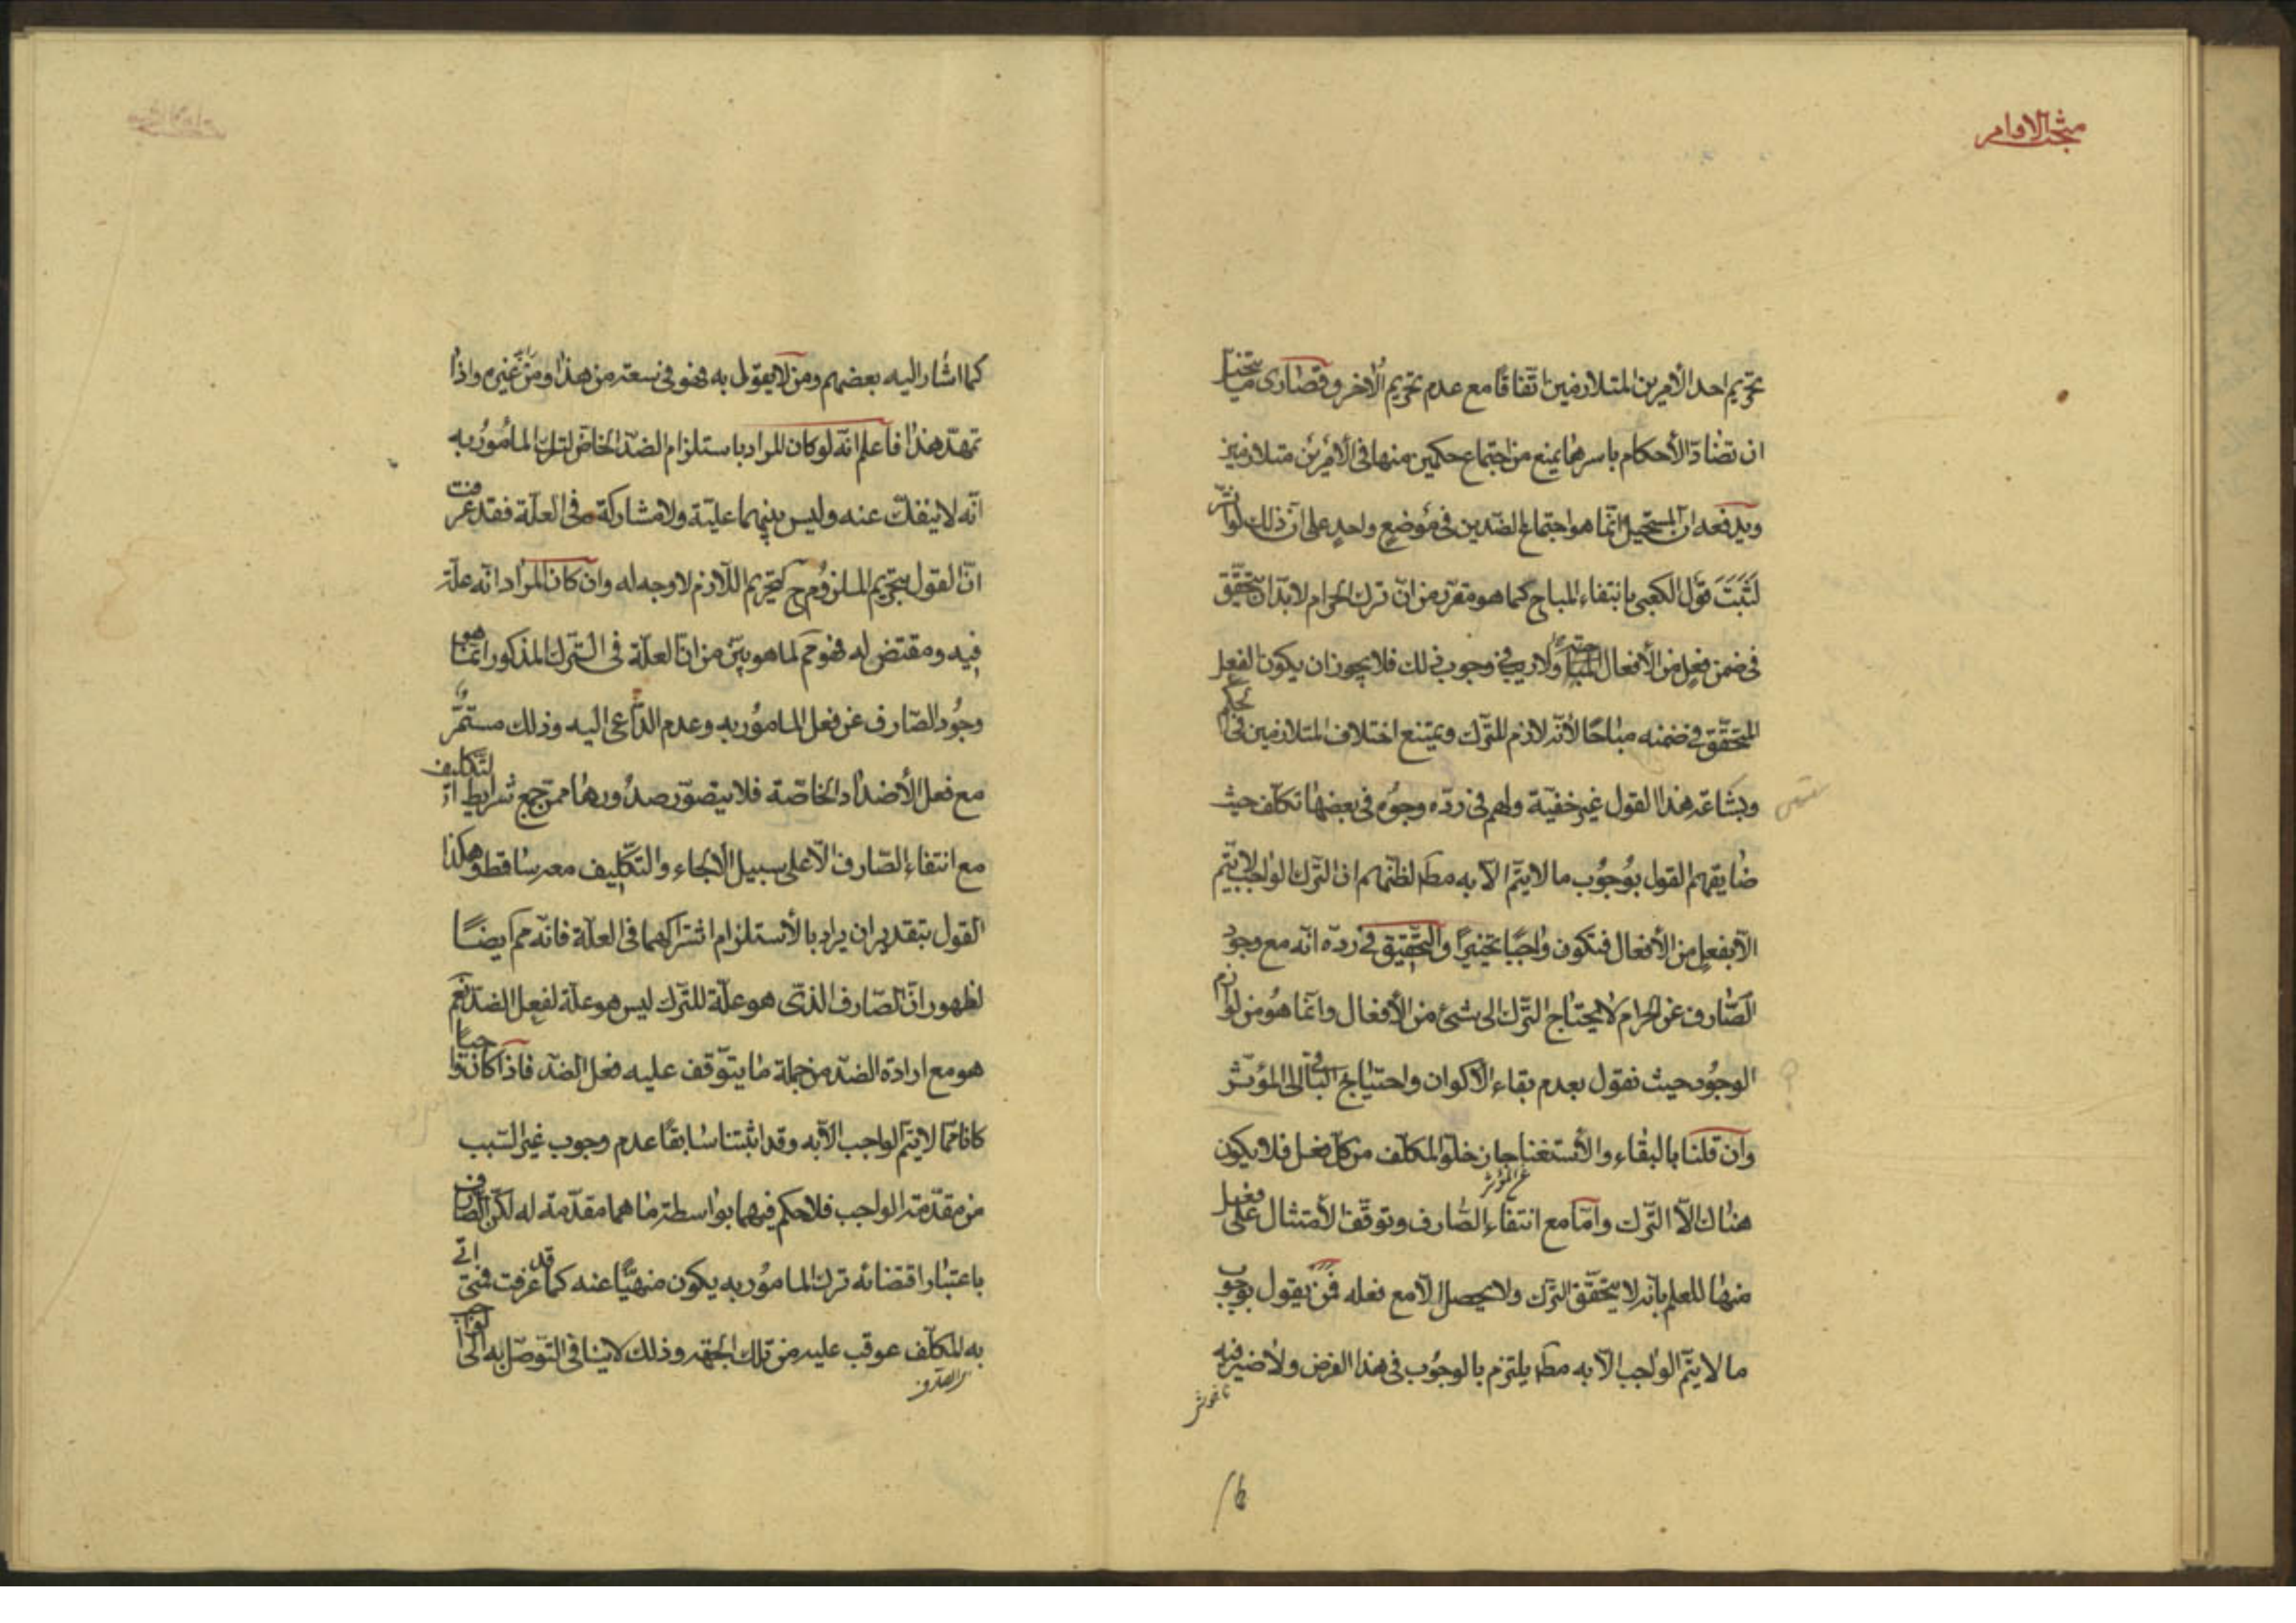 مبحث الاوامر
تحريم احد الأمرين المتلازمين اتّفاقًا مع عدم تحريم الآخر وقصارى ما يتخيّل
ان تضادّ الأحكام باسرها يمنع من اجتماع حكمين منها فى الأمرين متلازمين
ويدفعه انّ المستحيل انّما هو اجتماع الضدّين فى موضع واحد على انّ ذلك لو اثّر
لَثَبَتَ قول الكعبى بانتفاء المباح كما هو مقرّر من انّ ترك الحرام لا بدّ ان يتحقّق
فى ضمن فعل من الأفعال ولا ريب فى وجوب ذلك فلا يجوز ان يكون الفعل
المتحقّق فى ضمنه مباحًا لأنّه لازم للترك ويمتنع اختلاف المتلازمين فى الحكم
وبشاعة هذا القول غير خفيّة ولهم فى ردّه وجوه فى بعضها تكلّف حيث
ضايقهم القول بوجوب ما لا يتمّ الّا به مط لظنّهم ان التّرك الواجب لا يتمّ
الّا بفعل من الأفعال فتكون واجبًا تخييرًا والتحقيق فى ردّه انّه مع وجود
الصّارف عن الحرام لا يحتاج التّرك الى شىء من الأفعال وانّما هو من لوازم
الوجود حيث نقول بعدم بقاء الأكوان واحتياج الباقى الى المؤثّر
وان قلنا بالبقاء والأستغنا جاز خلوّ المكلّف من كلّ فعل فلا يكون
عن المؤثر
هناك الّا التّرك وامّا مع انتفاء الصّارف وتوقّف الأمتثال على فعل
منها للعلم بانّه لا يتحقّق الترك ولا يحصل الّا مع فعله فمن يقول بوجوب
ما لا يتمّ الواجب الّا به مط يلتزم بالوجوب فى هذا الفرض ولا ضير فيه
كما اشار اليه بعضهم ومن لا يقول به فهو فى سعة من هذا ومن غيره واذا
تمهّد هذا فاعلم انّه لو كان المراد باستلزام الضدّ الخاصّ لترك المأمور به
انّه لا ينفكّ عنه وليس بينهما عليّة ولا مشاركة فى العلّة فقد عرفت
انّ القول بتحريم الملزوم ح لتحريم اللّازم لا وجه له وان كان المراد انّه علّة
فيه ومقتض له فهو مم لما هو بيّن من انّ العلّة فى التّرك المذكور انّما هو
وجود الصّارف عن فعل المأمور به وعدم الدّاعى اليه وذلك مستمرّ
مع فعل الأضداد الخاصّة فلا يتصوّر صدورها ممّن جمع شرايط التّكليف
مع انتفاء الصّارف الّا على سبيل الألجاء والتّكليف معه ساقط وهكذا
القول بتقدير ان يراد بالأستلزام اشتراكهما فى العلّة فانّه مم ايضًا
لظهور انّ الصّارف الّذى هو علّة للتّرك ليس هو علّة لفعل الضدّ نعم
هو مع ارادة الضدّ من جملة ما يتوقّف عليه فعل الضدّ فاذا كان واجبًا
كانا ممّا لا يتمّ الواجب الّا به وقد اثبتنا سابقًا عدم وجوب غير السّبب
من مقدّمة الواجب فلا حكم فيهما بواسطة ما هما مقدّمة له لكن الصّارف
باعتبار اقتضائه ترك المأمور به يكون منهيًّا عنه كما قد عرفت فمتى اتى
به المكلّف عوقب عليه من تلك الجهة وذلك لا ينافى التّوصّل به الى الواجب